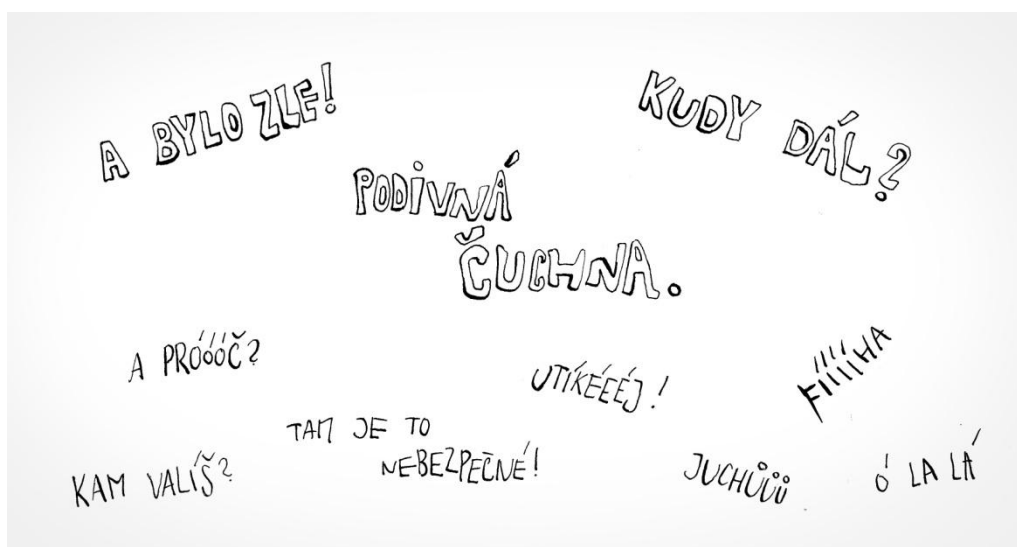 A BYLO ZLE!
KUDY DÁL?
PODIVNÁ
ČUCHNA.
A PRÓÓÓČ?
UTÍKÉÉÉJ!
FÍÍÍÍHA
TAM JE TO
NEBEZPEČNÉ!
KAM VALÍŠ?
JUCHŮŮŮ
Ó LA LÁ